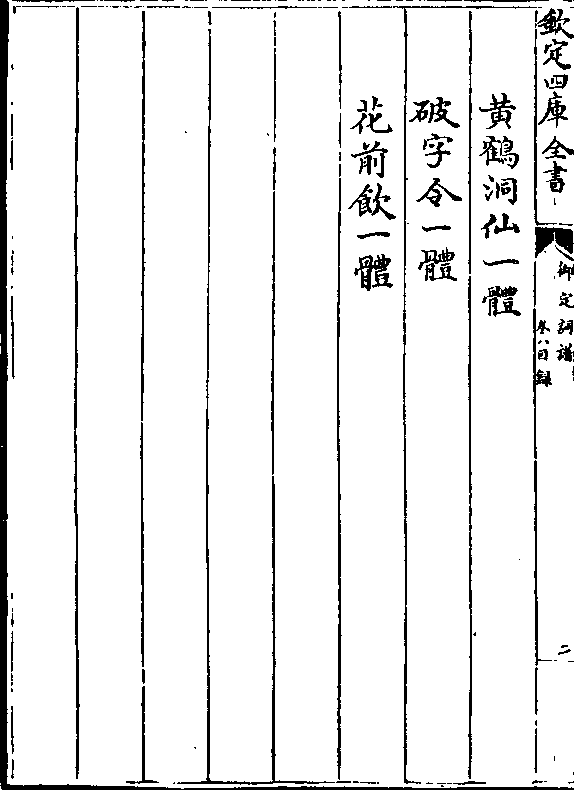 欽定四庫全書
御定詞譜
卷八目錄
二
黃鶴洞仙一體
破字令一體
花前飲一體